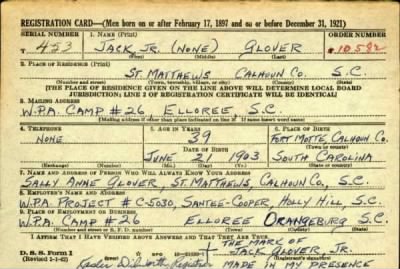 REGISTRATION CARD—(Men born on or after February 17, 1897 and on or before December 31, 1921)
SERIAL NUMBER 1. NAME (Print) ORDER NUMBER
T 453 JACK JR. (NONE) GLOVER 10582
(First) (Middle) (Last)
2. PLACE OF RESIDENCE (Print)
ST. MATTHEWS CALHOUN CO. S.C.
(Number and street) (Town, township, village, or city) (County) (State)
[THE PLACE OF RESIDENCE GIVEN ON THE LINE ABOVE WILL DETERMINE LOCAL BOARD
JURISDICTION; LINE 2 OF REGISTRATION CERTIFICATE WILL BE IDENTICAL]
3. MAILING ADDRESS
W.P.A. CAMP #26 ELLOREE, S.C.
[Mailing address if other than place indicated on line 2. If same insert word same]
4. TELEPHONE 5. AGE IN YEARS 6. PLACE OF BIRTH
NONE 39 FORT MOTTE CALHOUN CO.
DATE OF BIRTH (Town or county)
JUNE 21 1903 SOUTH CAROLINA
(Exchange) (Number) (Mo.) (Day) (Yr.) (State or country)
7. NAME AND ADDRESS OF PERSON WHO WILL ALWAYS KNOW YOUR ADDRESS
SALLY ANNE GLOVER, ST. MATTHEWS, CALHOUN CO., S.C.
8. EMPLOYER'S NAME AND ADDRESS
W.P.A. PROJECT # C-5030, SANTEE-COOPER, HOLLY HILL, S.C.
9. PLACE OF EMPLOYMENT OR BUSINESS
W.P.A. CAMP # 26 ELLOREE ORANGEBURG S.C.
(Number and street or R. F. D. number) (Town) (County) (State)
I AFFIRM THAT I HAVE VERIFIED ABOVE ANSWERS AND THAT THEY ARE TRUE.
D. S. S. Form 1 THE MARK OF
JACK GLOVER, JR.
MADE IN MY PRESENCE